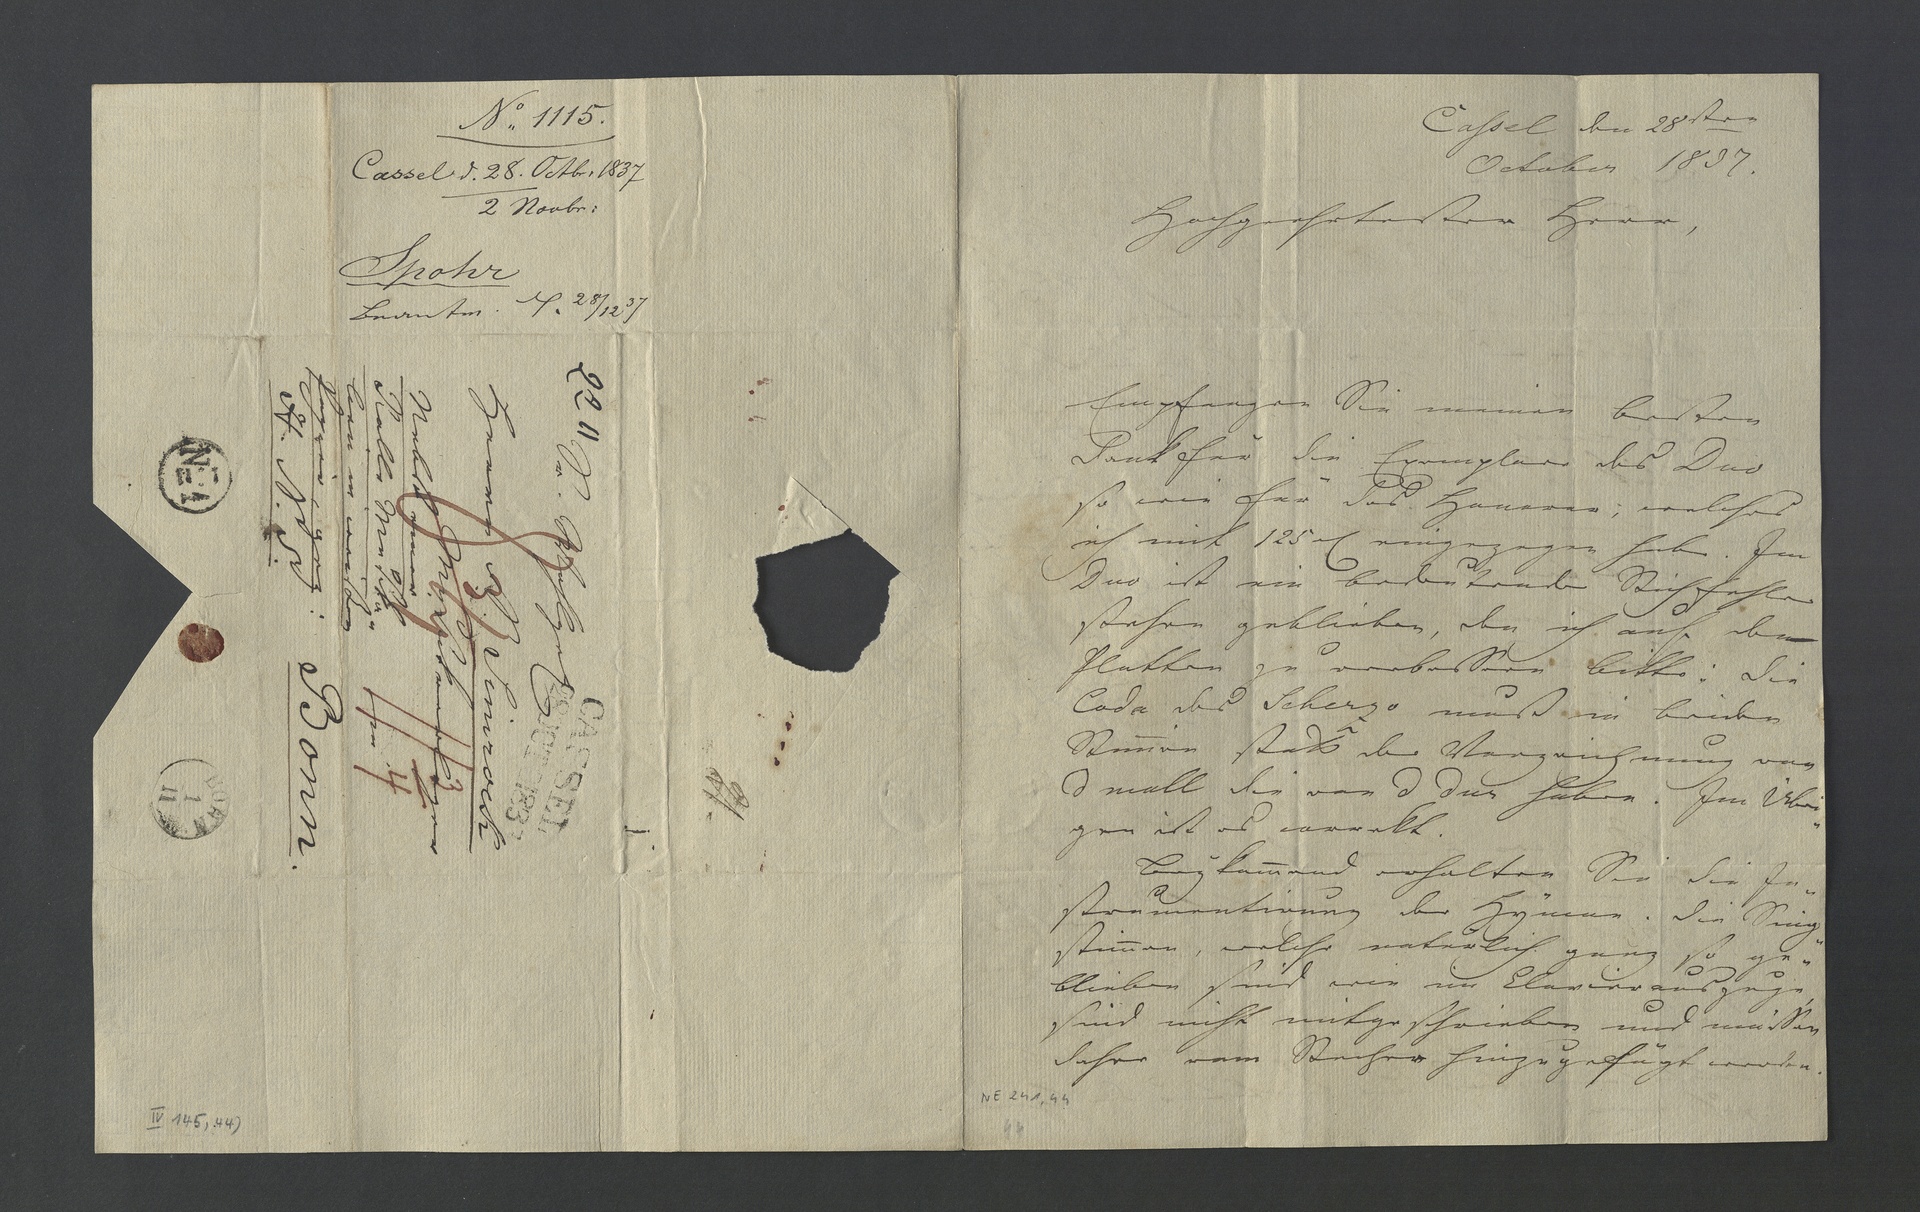 No. 1115.
Cassel d. 28. Octbr. 1837
2 Novbr:
Spohr
Beantw. 28/12 37
Herrn P. J. Simrock
Bonn.
CASSEL
BONN
1
11
N.E.1
IV 145, 44)
Cassel den 28sten
October 1837.
Hochgeehrtester Herr,
Empfangen Sie meinen besten
Dank für die Exemplare des Duo
so wie für das Honorar, welches
ich mit 125 eingezogen habe. Im
Duo ist ein bedeutender Stichfehler
stehen geblieben, den ich auf den
Platten zu verbessern bitte: die
Coda des Scherzo muß in beiden
Stimmen statt der Vorzeichnung von
d moll die von d dur haben. Im Übri-
gen ist es correkt.
Beykommend erhalten Sie die In-
strumentirung der Hymne. Die Sing-
stimmen, welche natürlich ganz so ge-
blieben sind wie im Clavierauszuge,
sind nicht mitgeschrieben und müssen
daher vom Stecher hinzugefügt werden.
NE 241, 44
44